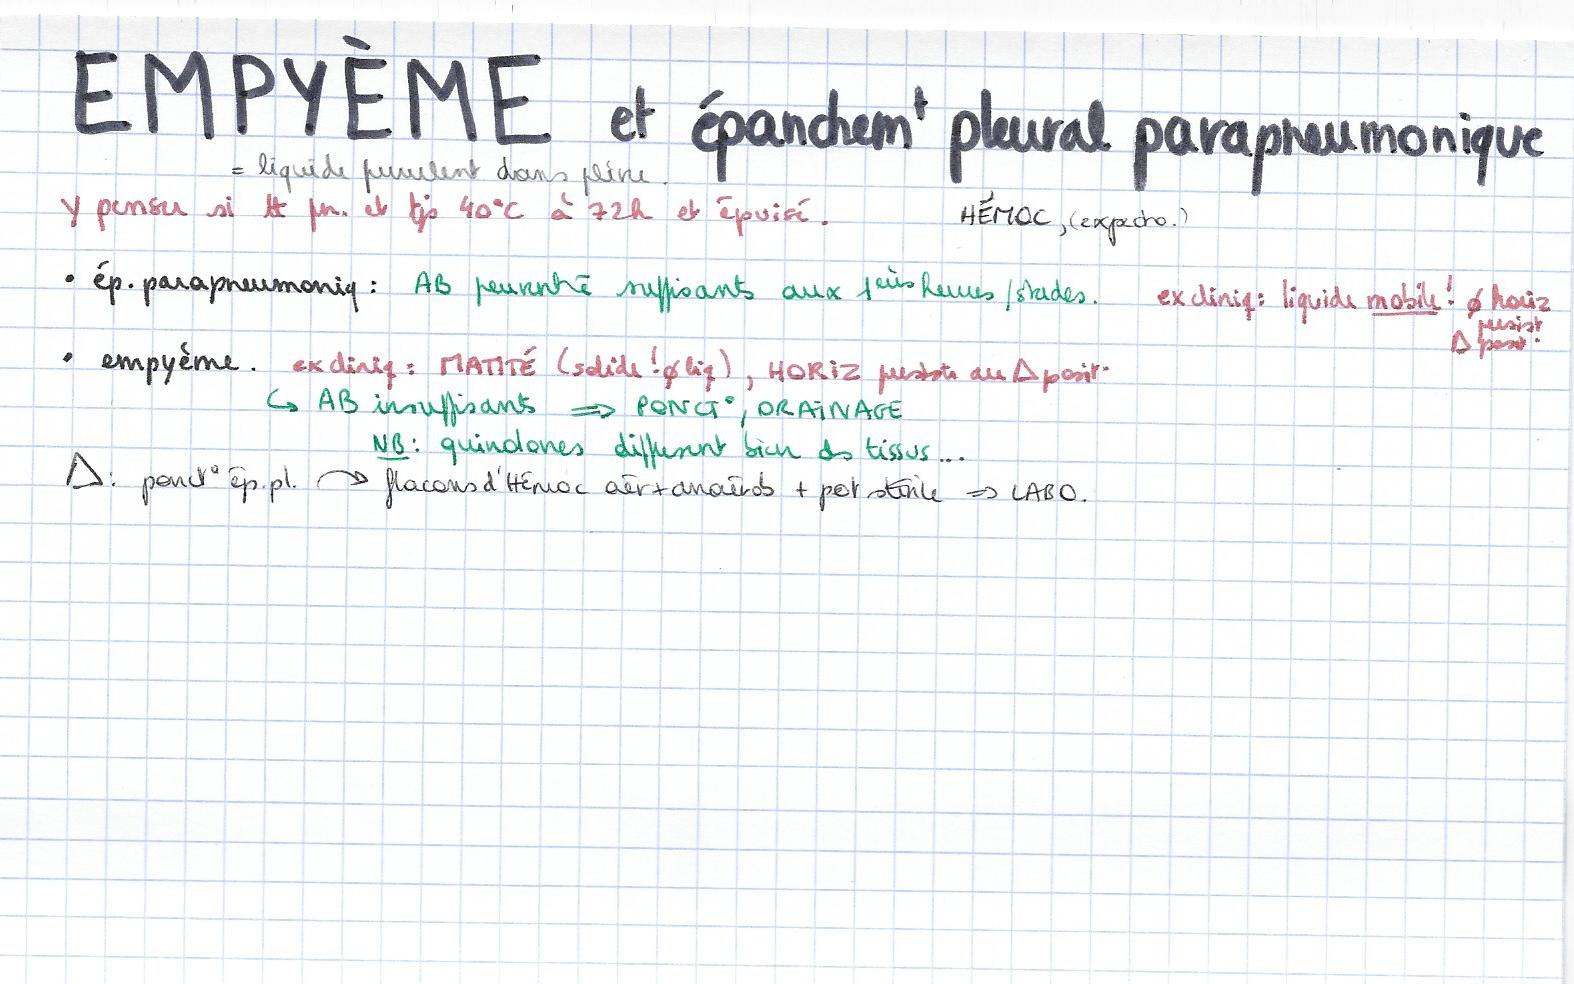 EMPYÈME et épanchem^t pleural parapneumonique
= liquide purulent dans plèvre.
y penser si tt pn. et tjs 40°C à 72h et épuisé. HÉMOC, (expecto.)
• ép. parapneumoniq : AB peuvent ê suffisants aux 1ères heures/stades. ex cliniq : liquide mobile ! ∅ horiz
persist
Δ posit°
• empyème. ex cliniq : MATITÉ (solide ! ∅ liq), HORIZ persiste au Δ posit°
↳ AB insuffisants ⇒ PONCT°, DRAINAGE
NB : quinolones diffusent bien ds tissus...
Δ : ponct° ép. pl. → flacons d'HÉMOC aér + anaérob + pot stérile ⇒ LABO.